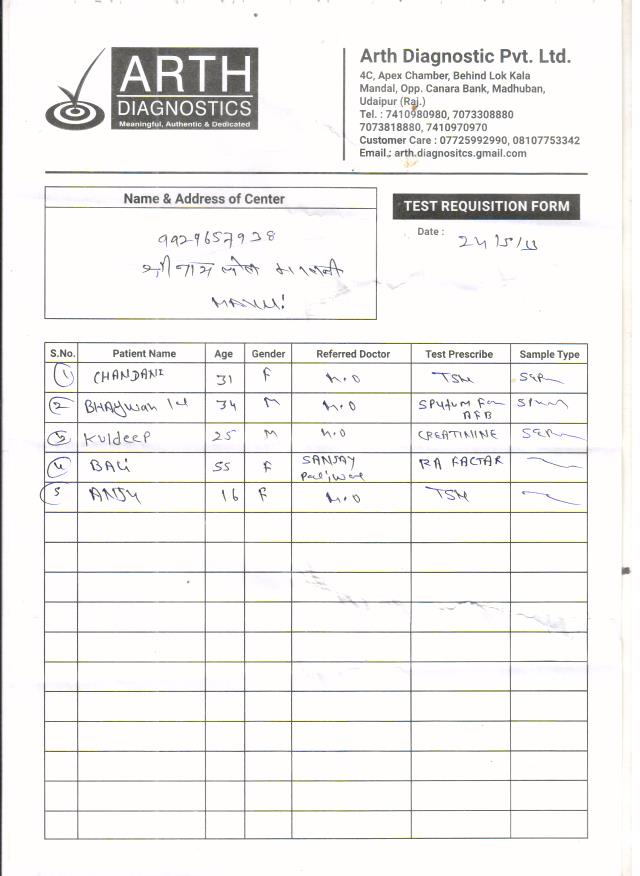 ARTH
DIAGNOSTICS
Meaningful, Authentic & Dedicated
Arth Diagnostic Pvt. Ltd.
4C, Apex Chamber, Behind Lok Kala
Mandal, Opp. Canara Bank, Madhuban,
Udaipur (Raj.)
Tel. : 7410980980, 7073308880
7073818880, 7410970970
Customer Care : 07725992990, 08107753342
Email.: arth.diagnositcs.gmail.com
Name & Address of Center
TEST REQUISITION FORM
9929657938
Date :
श्री नाथ
S.No. Patient Name Age Gender Referred Doctor Test Prescribe Sample Type
1 CHANDANI 31 F M.O TSH
2 BHAgwan 34 M M.O SPUTUM For AFB
3 Kuldeep 25 M M.O CREATININE
4 BALI 55 F SANJAY Paliwal RA FACTAR
5 ANJU 16 F M.O TSH